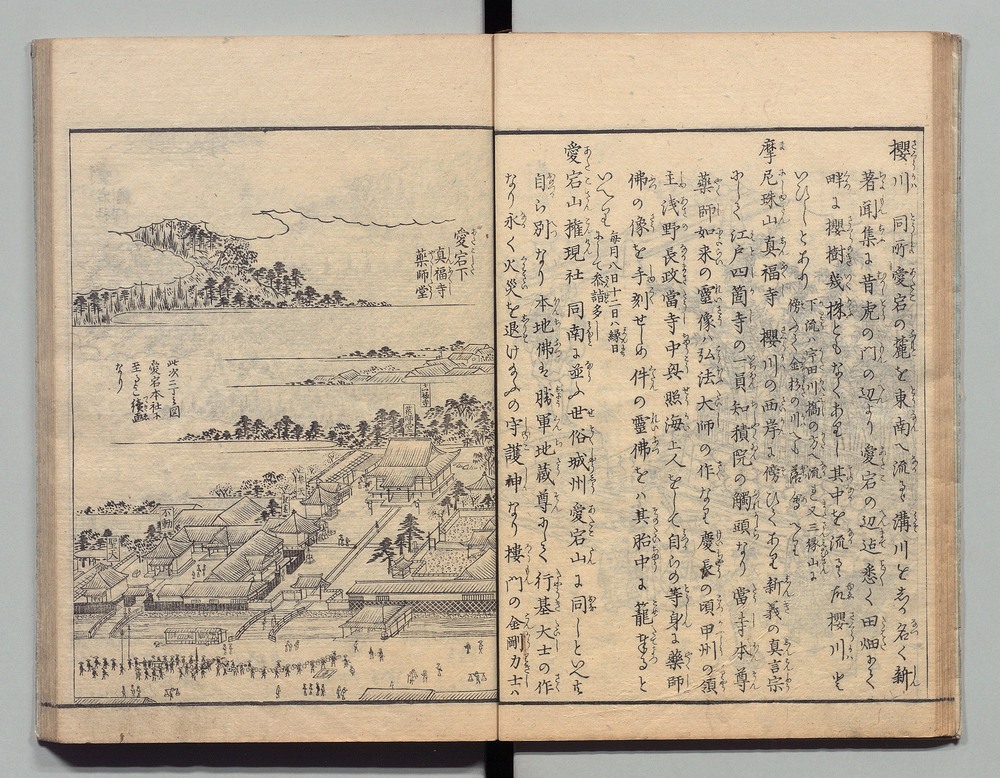 櫻川 同所愛宕の麓を東南へ流るゝ溝川をしか名く新
著聞集に昔虎の門の辺より愛宕の辺迄悉く田畑にて
畔に櫻樹幾株ともなくありし其中を流るゝ故櫻川と
いひしとあり
下流ハ宇田川橋の方へ流る又三縁山に
傍ふて金杉の川へも落るといへり
摩尼珠山真福寺 櫻川の西岸に傍ひてあり新義の真言宗
にして江戸四箇寺の一員知積院の觸頭なり當寺本尊
藥師如来の靈像ハ弘法大師の作なり慶長の頃甲州の領
主浅野長政當寺中興照海上人をして自らの等身に藥師
佛の像を手刻せしめ件の靈佛をハ其胎中に籠奉ると
いへり
毎月八日十二日ハ縁日
にして参詣多し
愛宕山権現社 同南に並ふ世俗城州愛宕山に同しといへとも
自ら別なり本地佛は勝軍地蔵尊にして行基大士の作
なり永く火災を退け給ふの守護神なり樓門の金剛力士ハ
愛宕下
真福寺
薬師堂
此次二丁の圖
愛宕本社に
至るまて續画
なり
薬師堂
不動